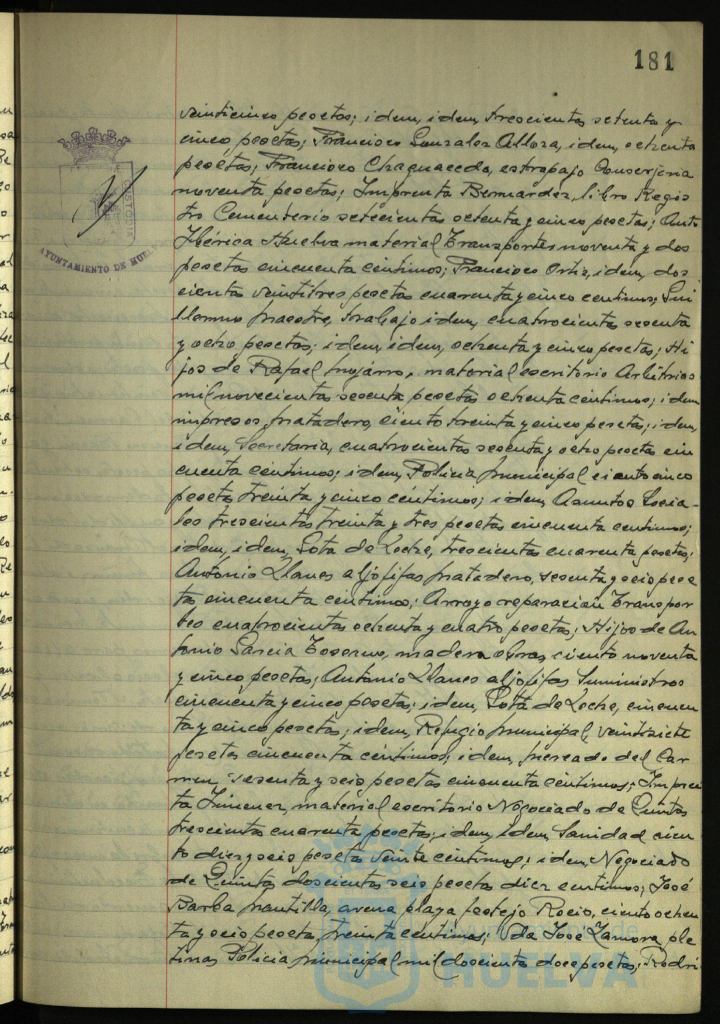 181
AYUNTAMIENTO DE HUEL
veinticinco pesetas; idem, idem, trescientas setenta y
cinco pesetas; Francisco Gonzalez Allora, idem, ochenta
pesetas; Francisco Chaguaceda, estropajo Conserjeria
noventa pesetas; Imprenta Bermudez, libro Regis
tro Cementerio setecientas setenta y cinco pesetas; Auto
Ibérica Huelva material Transportes noventa y dos
pesetas cincuenta céntimos; Francisco Ortiz, idem, dos
cientas veintitres pesetas cuarenta y cinco centimos; Gui
llermo Maestre, trabajo idem, cuatrocientas sesenta
y ocho pesetas; idem, idem, ochenta y cinco pesetas; Hi
jos de Rafael Mojarro, material escritorio Arbitrios
mil novecientas sesenta pesetas ochenta céntimos; idem
impresos Matadero, ciento treinta y cinco pesetas; idem,
idem, Secretaria, cuatrocientas sesenta y ocho pesetas cin
cuenta céntimos; idem, Policia Municipal ciento cinco
pesetas treinta y cinco céntimos; idem, Asuntos Socia-
les trescientas treinta y tres pesetas cincuenta centimos;
idem, idem, Gota de Leche, trescientas cuarenta pesetas;
Antonio Llanes aljofifas Matadero, sesenta y seis pese
tas cincuenta céntimos; Arroyo reparación Transpor
tes cuatrocientas ochenta y cuatro pesetas; Hijos de An
tonio Garcia Toscano, madera obras, ciento noventa
y cinco pesetas; Antonio Llanes aljofifas Suministros
cincuenta y cinco pesetas; idem, Gota de Leche, cincuen
ta y cinco pesetas; idem, Refugio Municipal, veintisiete
pesetas cincuenta céntimos; idem, Mercado del Car
men sesenta y seis pesetas cincuenta céntimos; Impren
ta Jimenez, material escritorio Negociado de Quintas
trescientas cuarenta pesetas; idem, idem, Sanidad cien
to diez y seis pesetas veinte céntimos; idem, Negociado
de Quintas, doscientas seis pesetas diez centimos; José
Barba Mantilla, arena playa festejo Rocio, ciento ochen
ta y seis pesetas, treinta centimos; Vda José Zamora ple
tinas Policia Municipal mil doscientas doce pesetas; Rodri
HUELVA